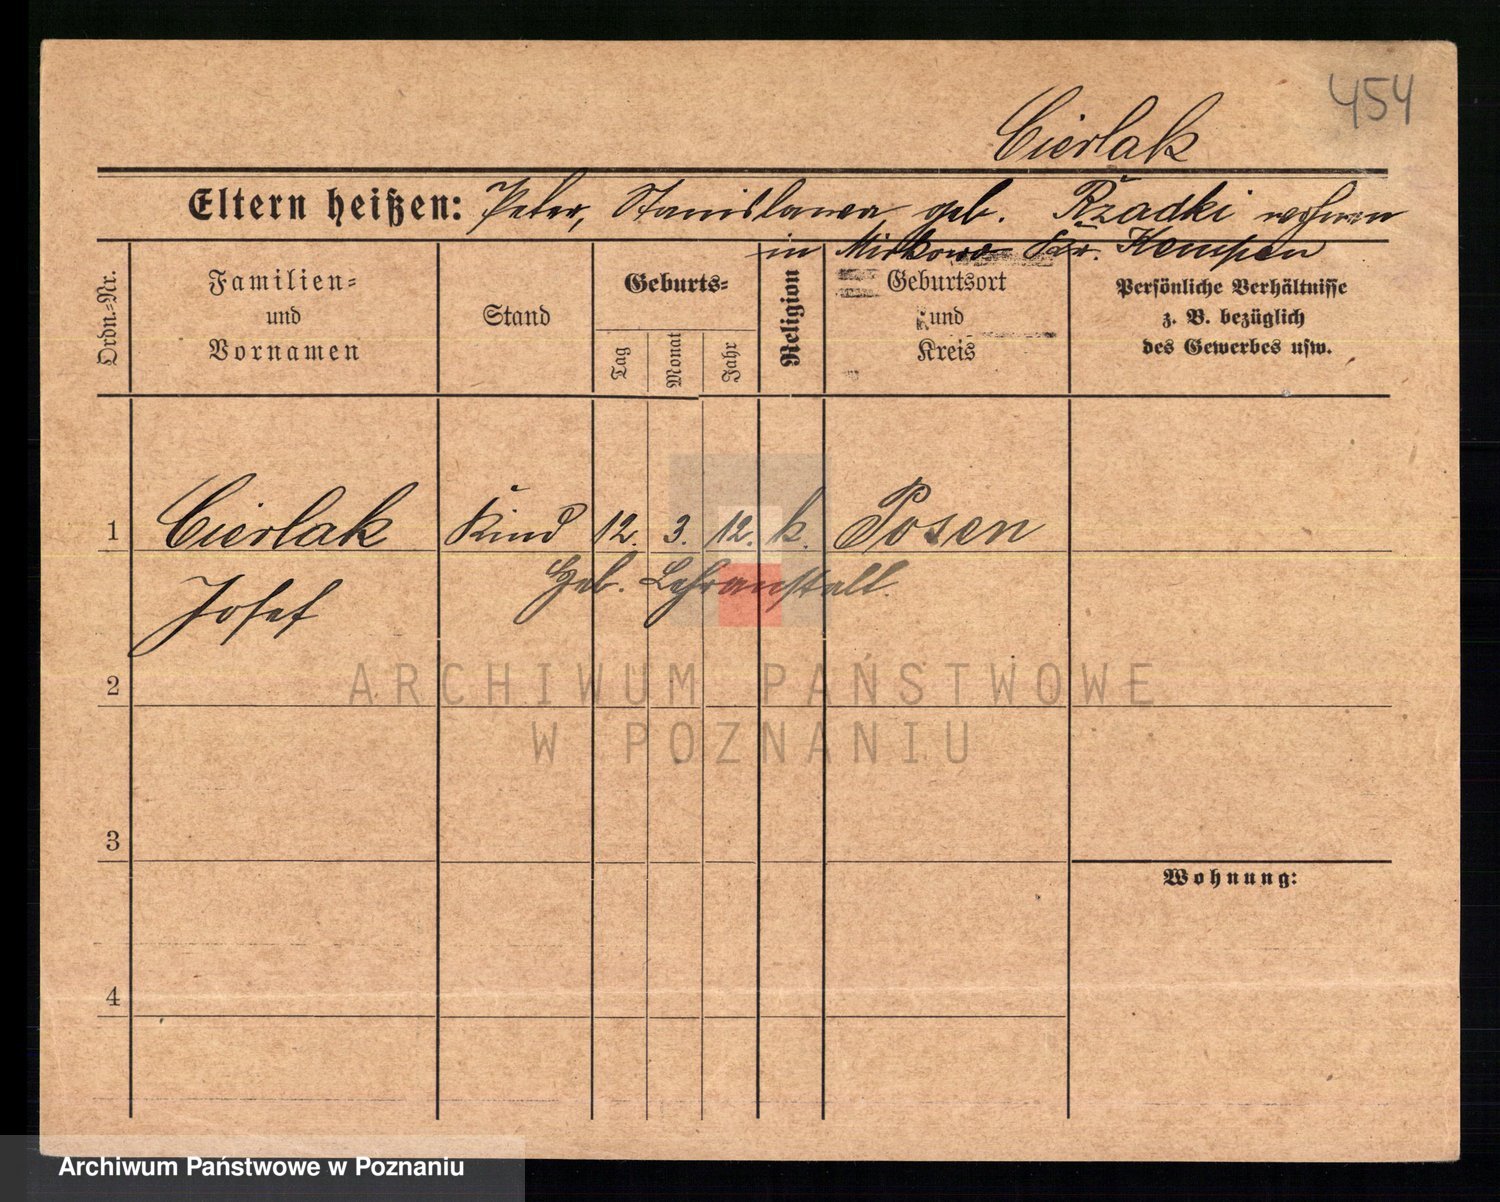 454
Cierlak
Eltern heißen: Peter, Stanislawa geb. Rzadki wohnen
in Mirkowo Kr. Kempen
Ordn.-Nr.
Familien-
und
Vornamen
Stand
Geburts-
Tag
Monat
Jahr
Religion
Geburtsort
und
Kreis
Persönliche Verhältnisse
z. B. bezüglich
des Gewerbes usw.
1 Cierlak Kind 12. 3. 12. k. Posen
Josef Geb. Lehranstalt.
2
3
Wohnung:
4
ARCHIWUM PAŃSTWOWE
W POZNANIU
Archiwum Państwowe w Poznaniu